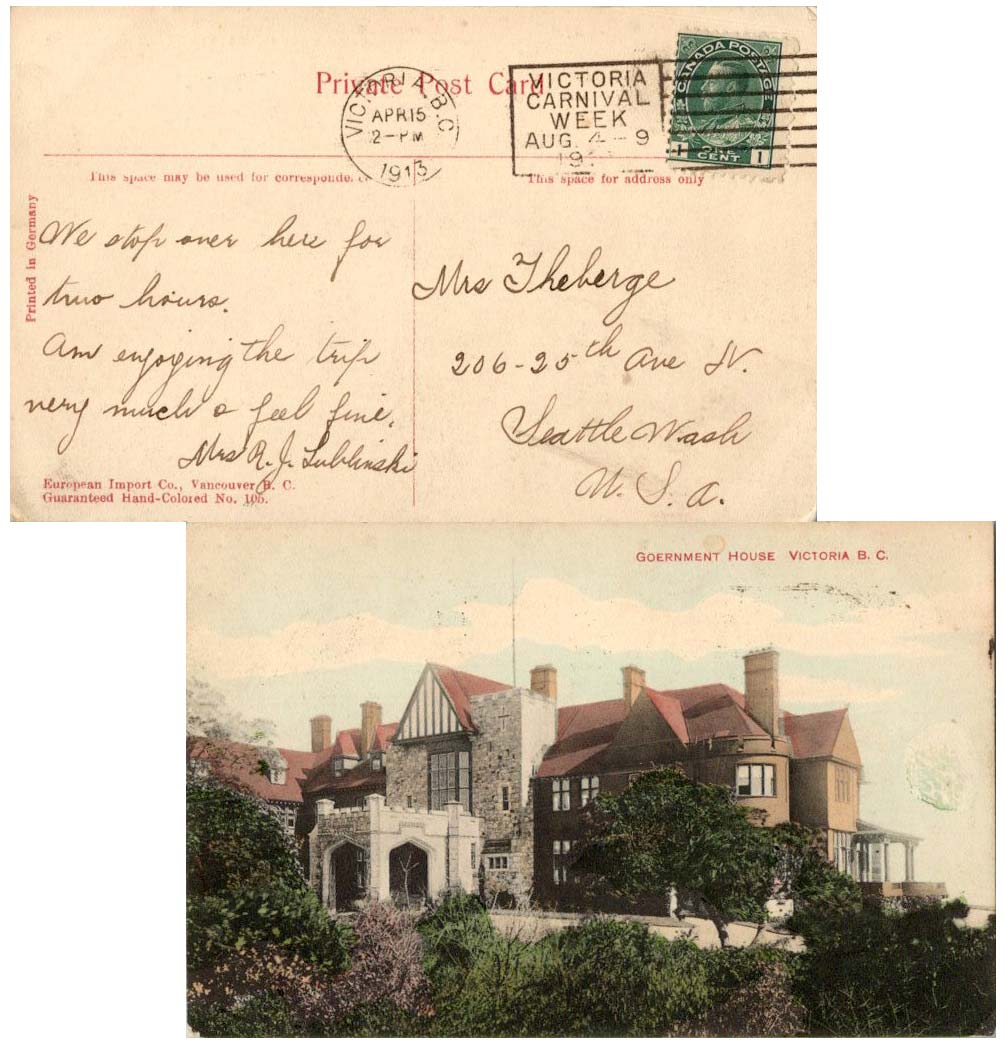 Private Post Card
VICTORIA, B.C
APR 15
2-PM
1913
VICTORIA
CARNIVAL
WEEK
AUG. 4-9
19
CANADA POSTAGE
1
ONE CENT
1
This space may be used for corresponde
This space for address only
Printed in Germany
We stop over here for
two hours.
Am enjoying the trip
very much & feel fine.
Mrs R. J. Lublinski
Mrs Theberge
206-25th Ave N.
Seattle Wash
U. S. A.
European Import Co., Vancouver B. C.
Guaranteed Hand-Colored No. 105.
GOERNMENT HOUSE VICTORIA B. C.